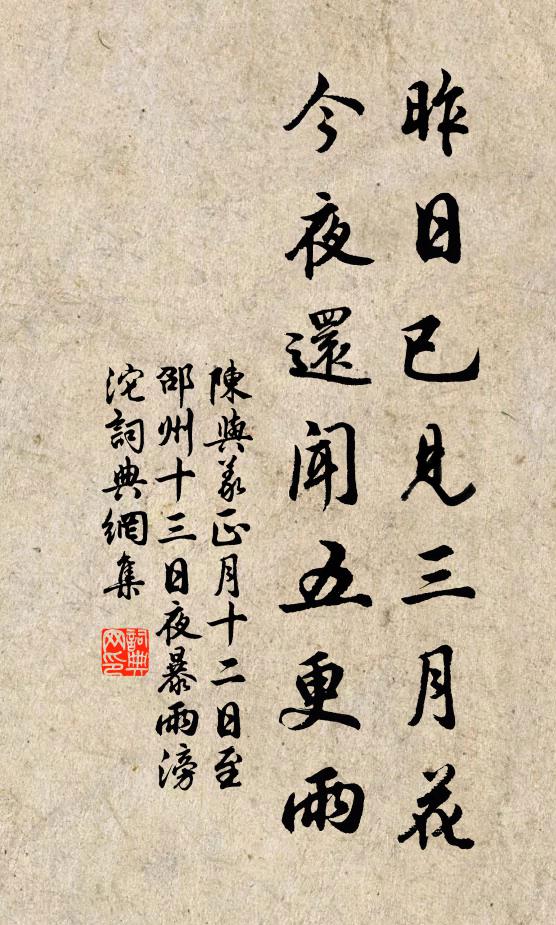 昨日已見三月花
今夜還聞五更雨
陳與義正月十二日至
邵州十三日夜暴雨滂
沱詞典網集
詞典
网印